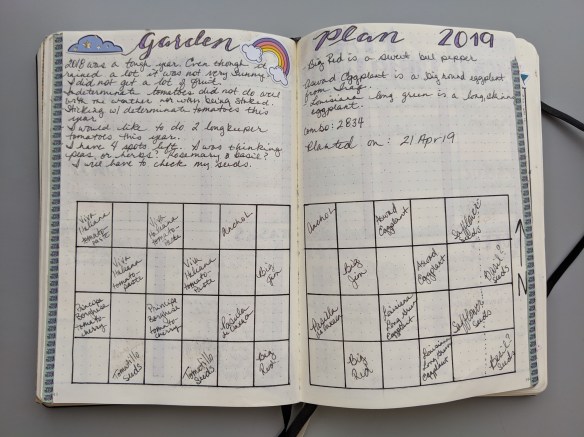 Garden
2018 was a tough year. Even though it
rained a lot it was not very sunny.
I did not get a lot of fruit.
Indeterminate tomatoes did not do well
with the weather nor with being staked.
Sticking w/ determinate tomatoes this
year.
I would like to do 2 longkeeper
tomatoes this year.
I have 4 spots left. I was thinking
peas, or herbs? Rosemary & Basil?
I will have to check my seeds.
Plan 2019
Big Red is a sweet bell pepper
Aswad Eggplant is a big round eggplant
from Iraq.
Louisiana long green is a long, skinny
eggplant.
combo: 2834
Planted on: 21 Apr 19
Viva
Italiana
tomato-
paste
Viva
Italiana
tomato-
paste
Ancho L
Viva
Italiana
tomato-
paste
Viva
Italiana
tomato-
paste
Big
Jim
Principe
Borghese
tomato-
cherry
Principe
Borghese
tomato-
cherry
Pasilla
Tomatillo
seeds
Tomatillo
seeds
Big
Red
Ancho L
Aswad
Eggplant
Safflower
seeds
Big
Jim
Aswad
Eggplant
Basil?
seeds
Pasilla
Louisiana
Long Green
Eggplant
Safflower
seeds
Big
Red
Louisiana
Long Green
Eggplant
Basil?
seeds
N